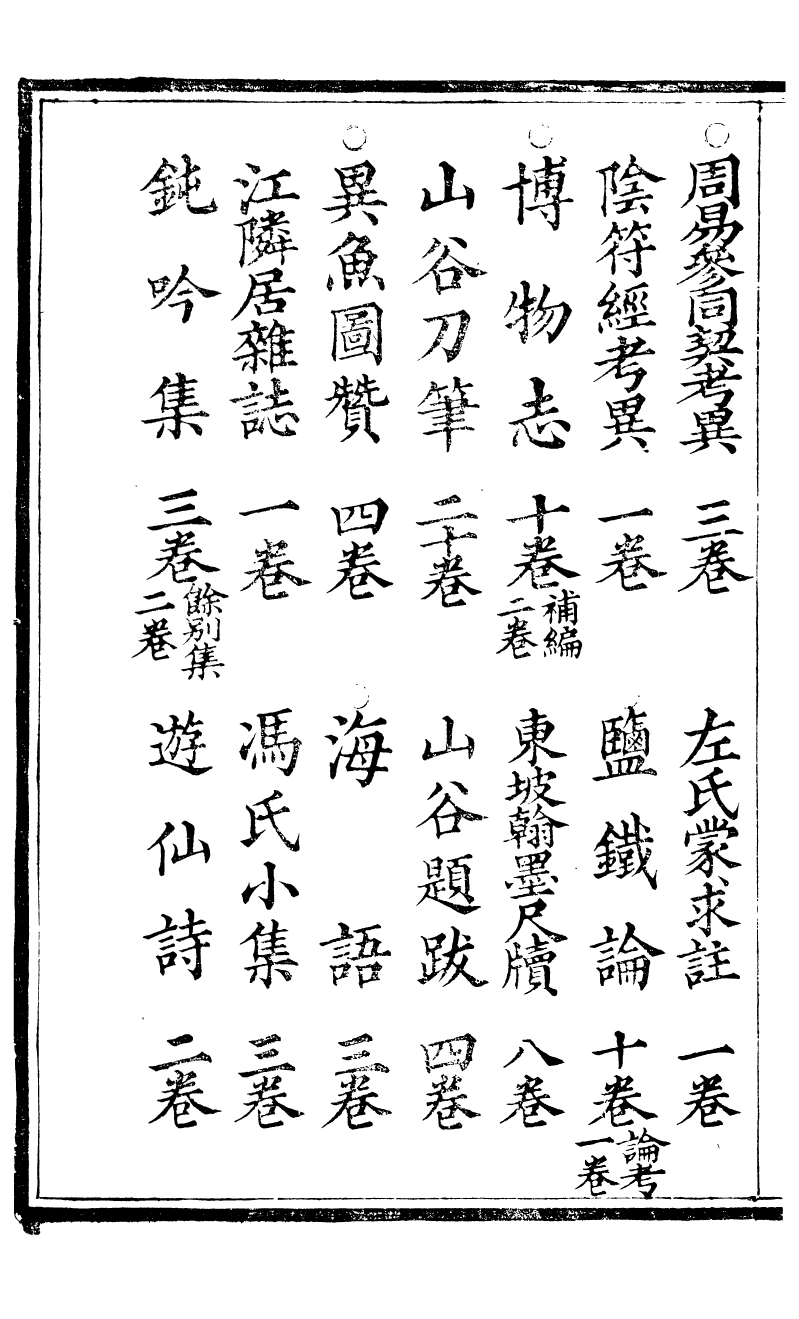 ○周易參同契考異 三卷 左氏蒙求註 一卷
陰符經考異 一卷 鹽鐵論 十卷論考一卷
○博物志 十卷補編二卷 東坡翰墨尺牘 八卷
山谷刀筆 二十卷 山谷題跋 四卷
○異魚圖贊 四卷 ○海語 三卷
江隣居雜誌 一卷 馮氏小集 三卷
鈍吟集 三卷餘別集二卷 遊仙詩 二卷